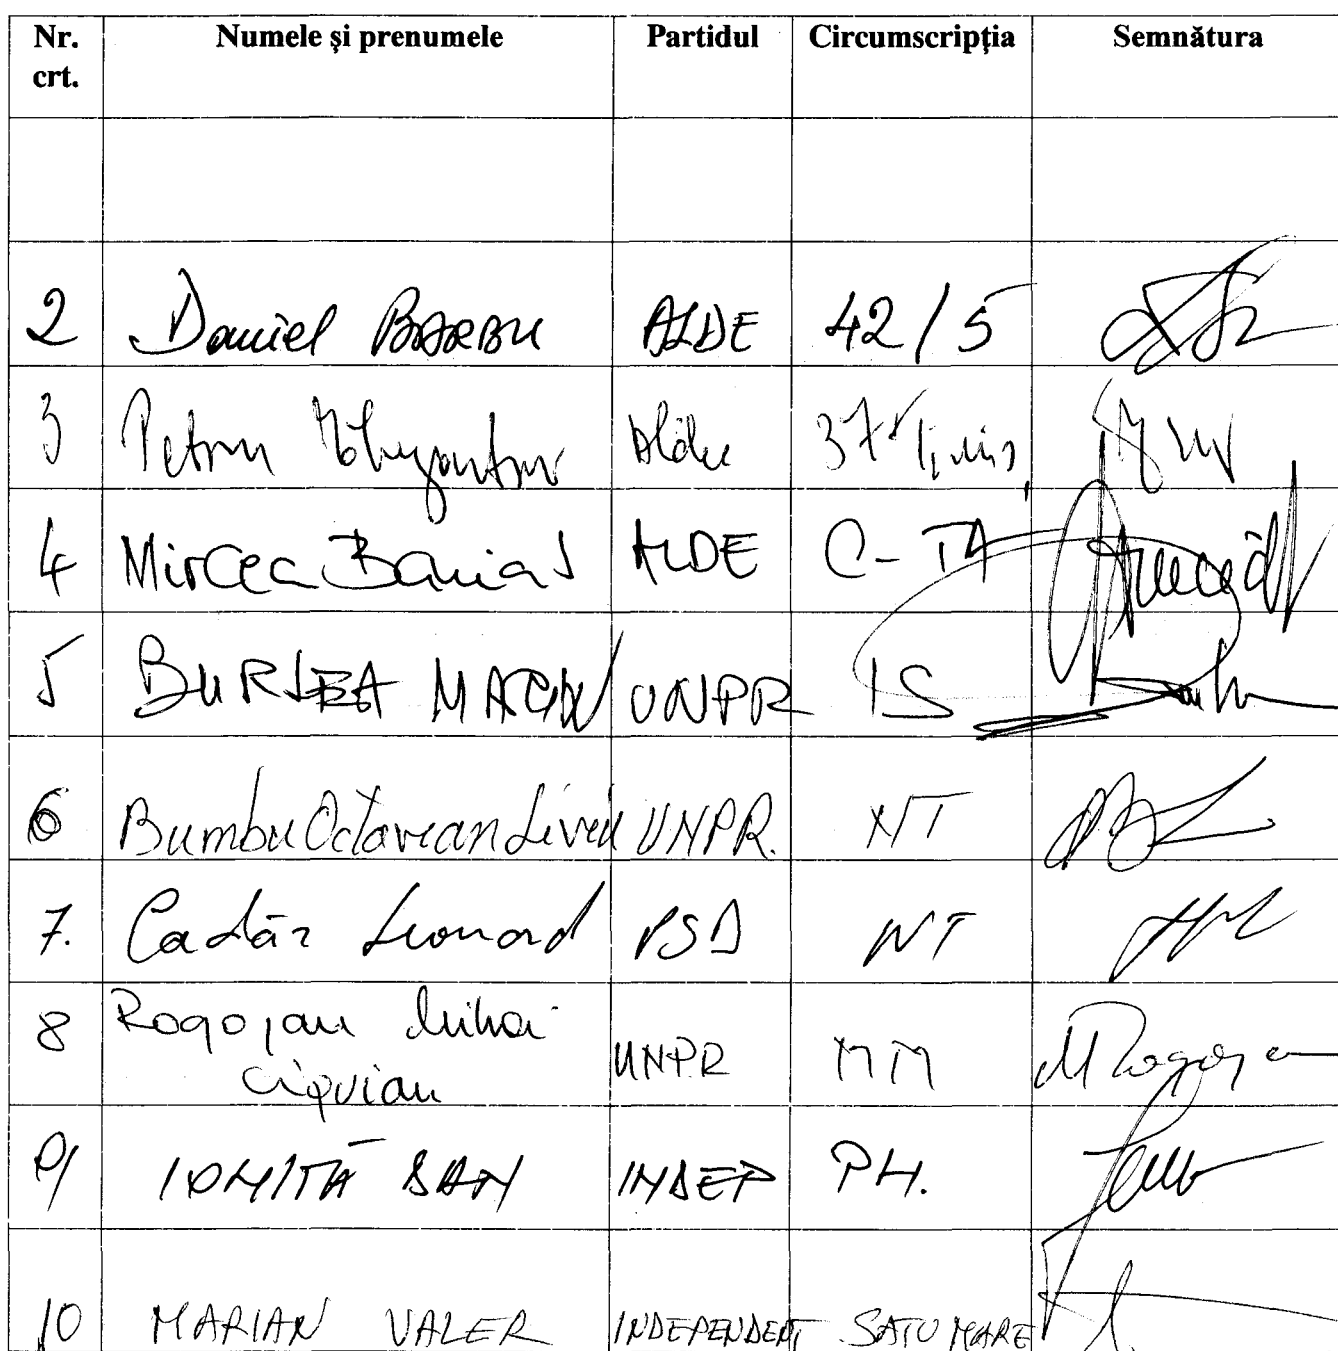 Nr. crt. Numele și prenumele Partidul Circumscripția Semnătura
2 Daniel BARBU ALDE 42/5
3 Petru Alde 37 Timiș
4 Mircea Banias ALDE C-TA
5 BURLEA MARIN UNPR IS
6 Bumbu Octavian Liviu UNPR. NT
7. Cadăr Leonard PSD NT
8 Rogojan Mihai UNPR MM
Ciprian
9/ IONIȚĂ DAN INDEP PH.
10 MARIAN VALER INDEPENDENT SATU MARE